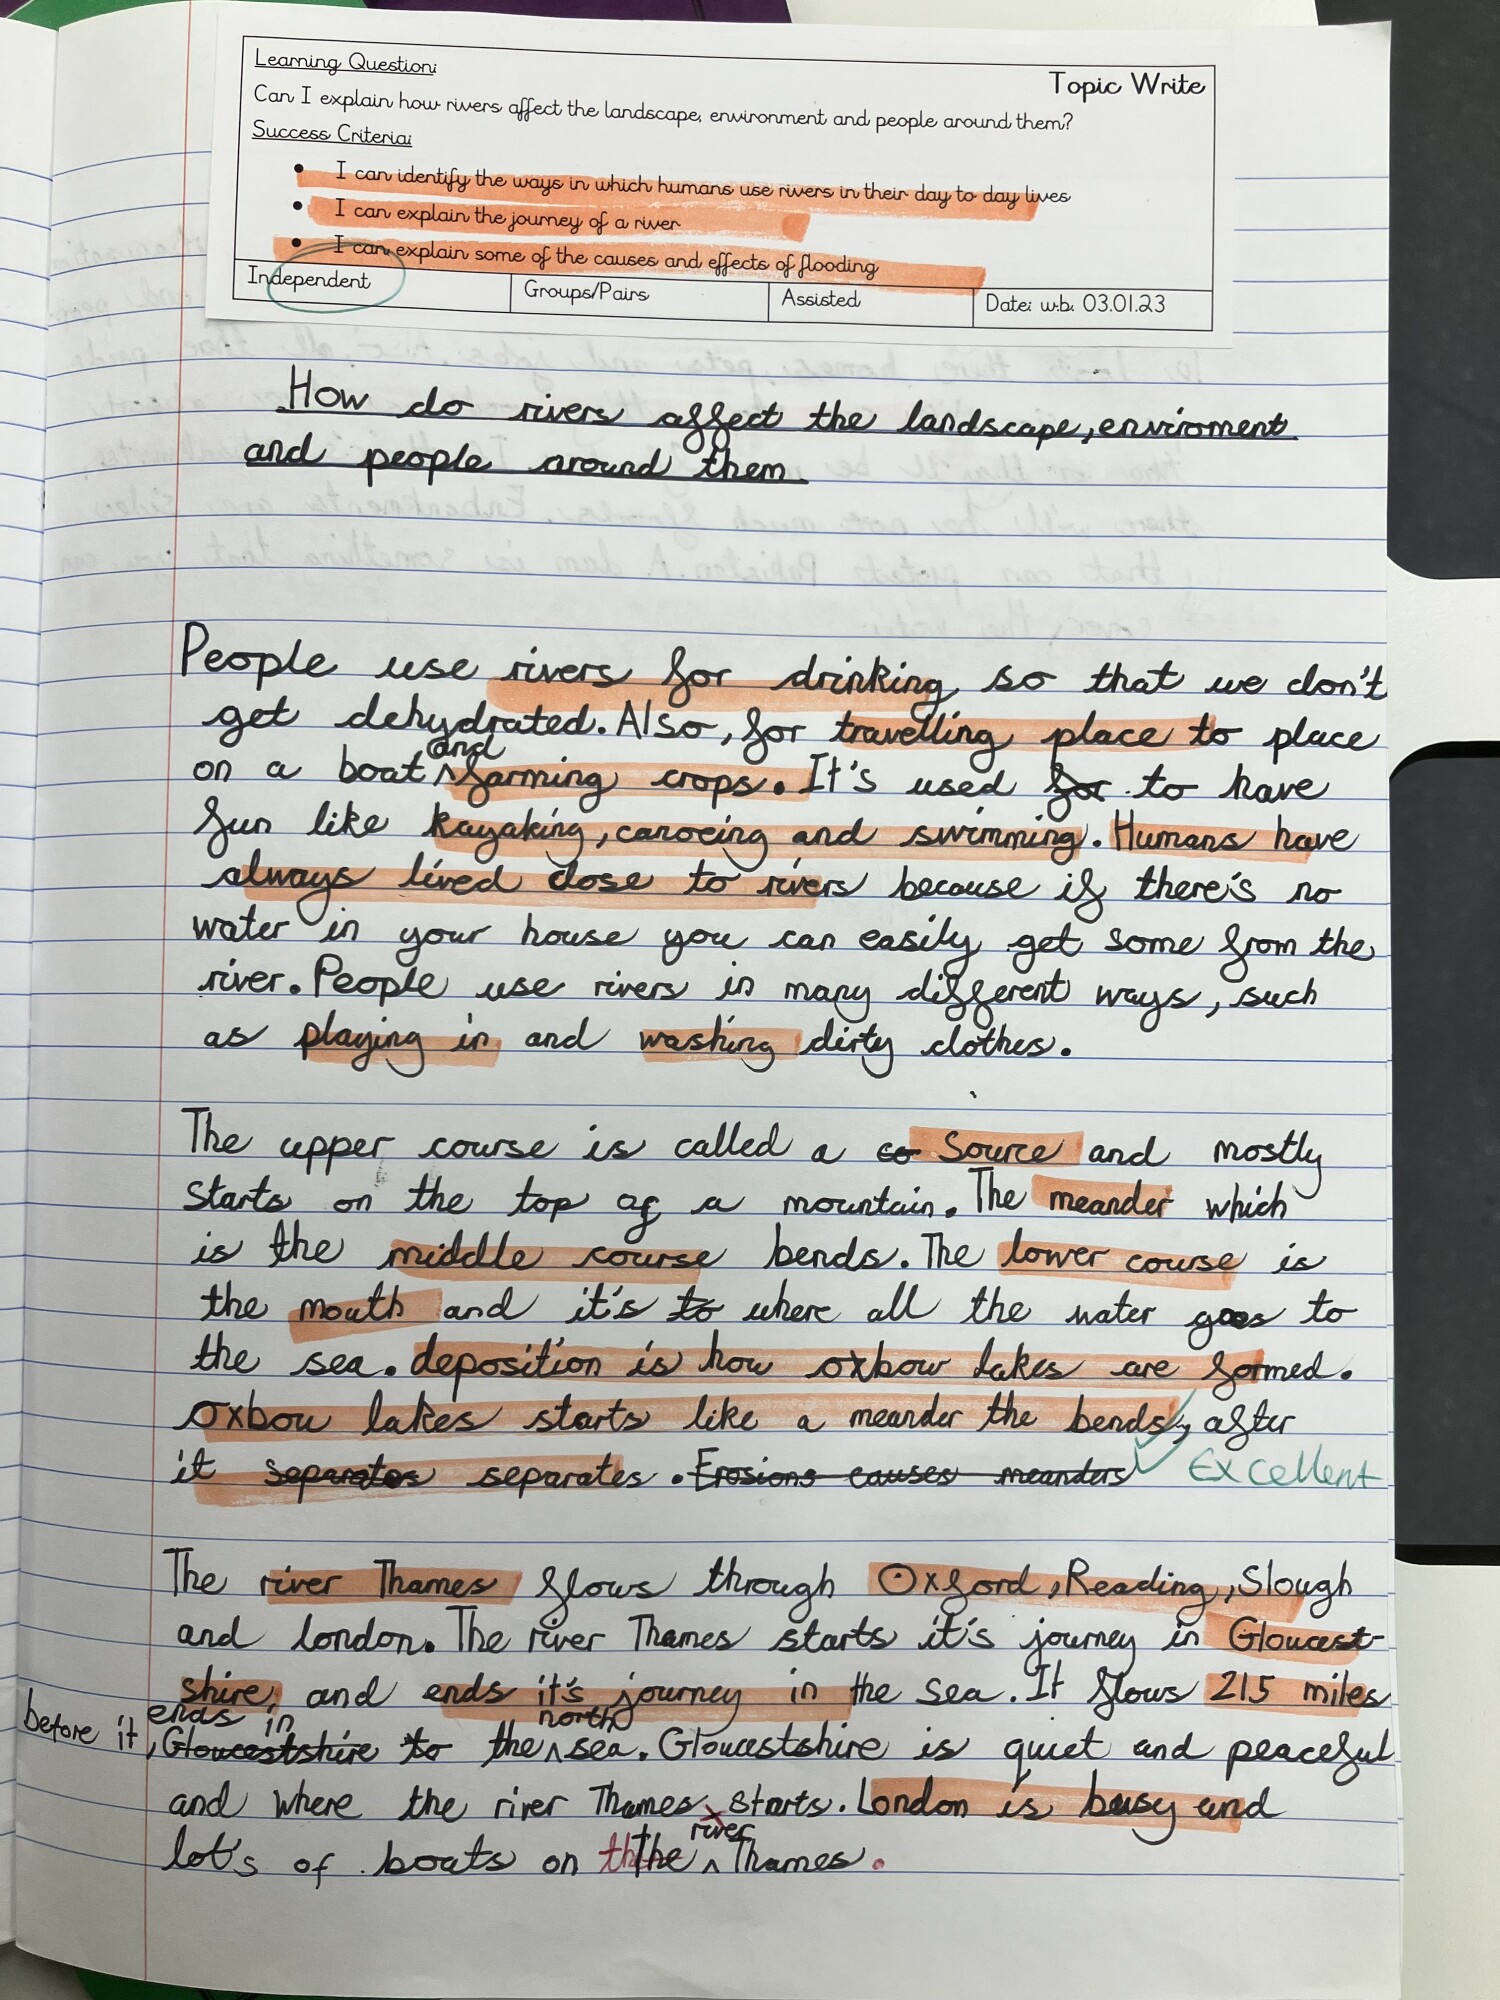 Learning Question:
Topic Write
Can I explain how rivers affect the landscape, environment and people around them?
Success Criteria:
• I can identify the ways in which humans use rivers in their day to day lives
• I can explain the journey of a river
• I can explain some of the causes and effects of flooding
Independent Groups/Pairs Assisted Date: w.b. 03.01.23
How do rivers affect the landscape, enviroment
and people around them
People use rivers for drinking so that we don't
get dehydrated. Also, for travelling place to place
on a boat ^and farming crops. It's used for to have
fun like kayaking, canoeing and swimming. Humans have
always lived close to rivers because if there's no
water in your house you can easily get some from the
river. People use rivers in many different ways, such
as playing in and washing dirty clothes.
The upper course is called a so Source and mostly
starts on the top of a mountain. The meander which
is the middle course bends. The lower course is
the mouth and it's to where all the water goes to
the sea. deposition is how oxbow lakes are formed.
Oxbow lakes starts like a meander the bends, after
it separates separates. Erosions causes meanders Excellent
The river Thames flows through Oxford, Reading, Slough
and london. The river Thames starts it's journey in Gloucest-
shire, and ends it's journey in the sea. It flows 215 miles
before it ends in, Gloucestshire to the ^north sea. Gloucestshire is quiet and peaceful
and where the river Thames starts. London is busy and
lot's of boats on the ^river Thames.